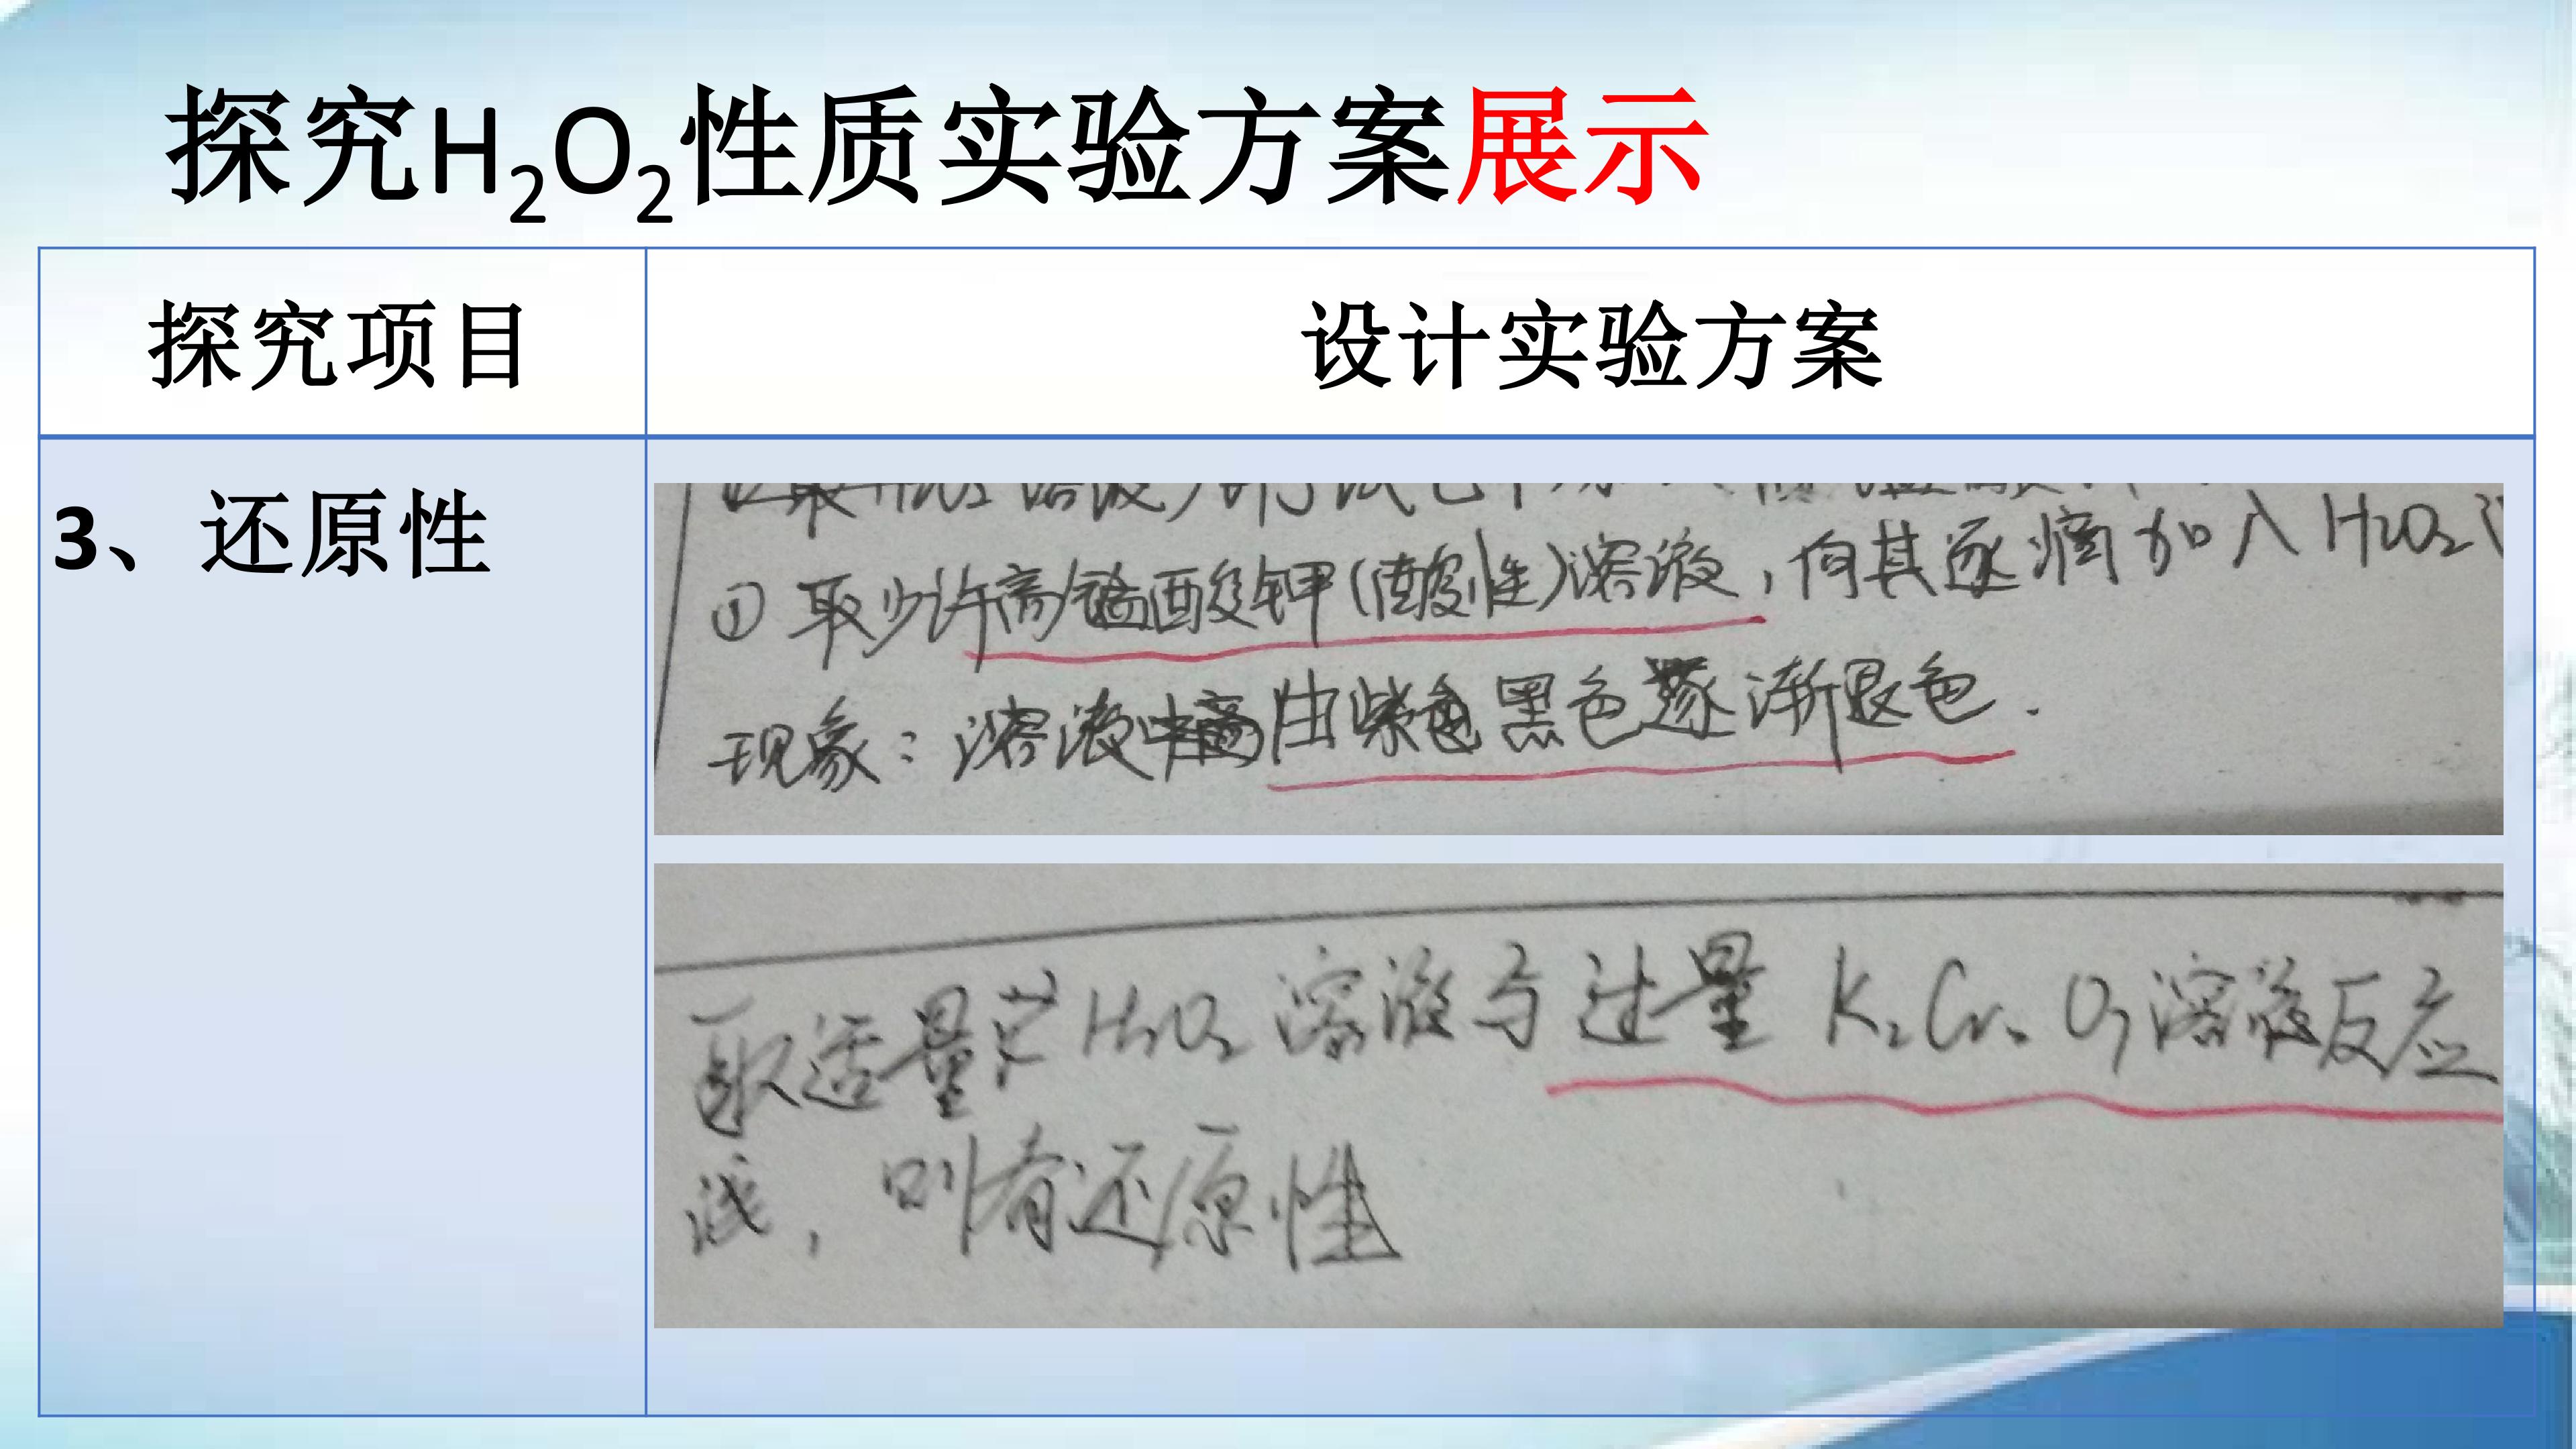 探究H₂O₂性质实验方案展示
探究项目
设计实验方案
3、还原性
①取少许高锰酸钾(酸性)溶液，向其逐滴加入H₂O₂
现象：溶液由紫黑色逐渐退色.
取适量 H₂O₂ 溶液与过量 K₂Cr₂O₇溶液反应
浅，则有还原性